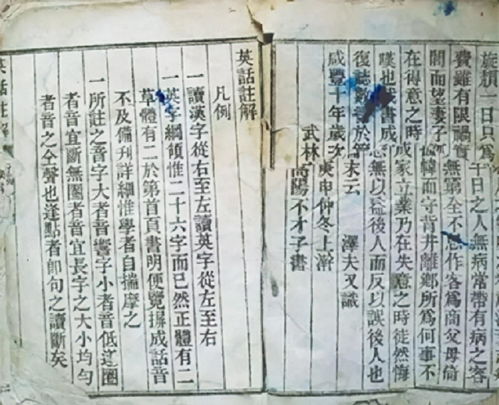 一日只爲千日之人無病常帶有病之容
費雖有限禍實無窮全不思作客爲商父母倚
閭而望妻子 幃而守背井離鄉所爲何事不
在得意之時成家立業乃在失意之時徒然悔
嘆也哉書成 無以益後人而反以誤後人也
復誌數言於篇末云 澤夫又識
咸豐十年歲次庚申仲冬上澣
武林高陽不才子書
英話註解
凡例
一讀漢字從右至左讀英字從左至右
一英字綱領惟二十六字而已然正體有二
草體有二於第首頁書明便覽摒成話音
不及備刊詳細惟學者自揣摩之
一所註之音字大者音響字小者音低逕圈
者音宜斷無圈者音宜長字之大小均勻
者音之仝聲也逢點者即句之讀斷矣
英話註解